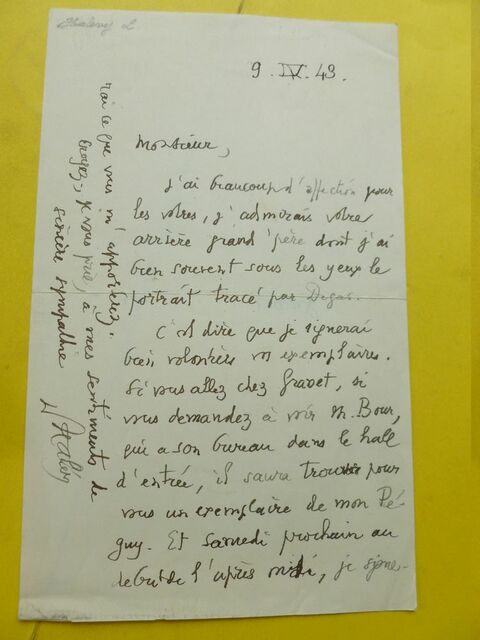 Halevy L
9. IV. 43.
Monsieur,
J'ai beaucoup d'affection pour
les vôtres, j'admirais votre
arrière grand'père dont j'ai
bien souvent sous les yeux le
portrait tracé par Degas.
C'est dire que je signerai
bien volontiers vos exemplaires.
Si vous allez chez Grasset, si
vous demandez à voir M. Bour,
qui a son bureau dans le hall
d'entrée, il saura trouver pour
vous un exemplaire de mon Pé-
guy. Et samedi prochain au
début de l'après midi, je signe-
rai ce que vous m'apporterez.
Croyez, je vous prie, à mes sentiments de
sincère sympathie
Halévy